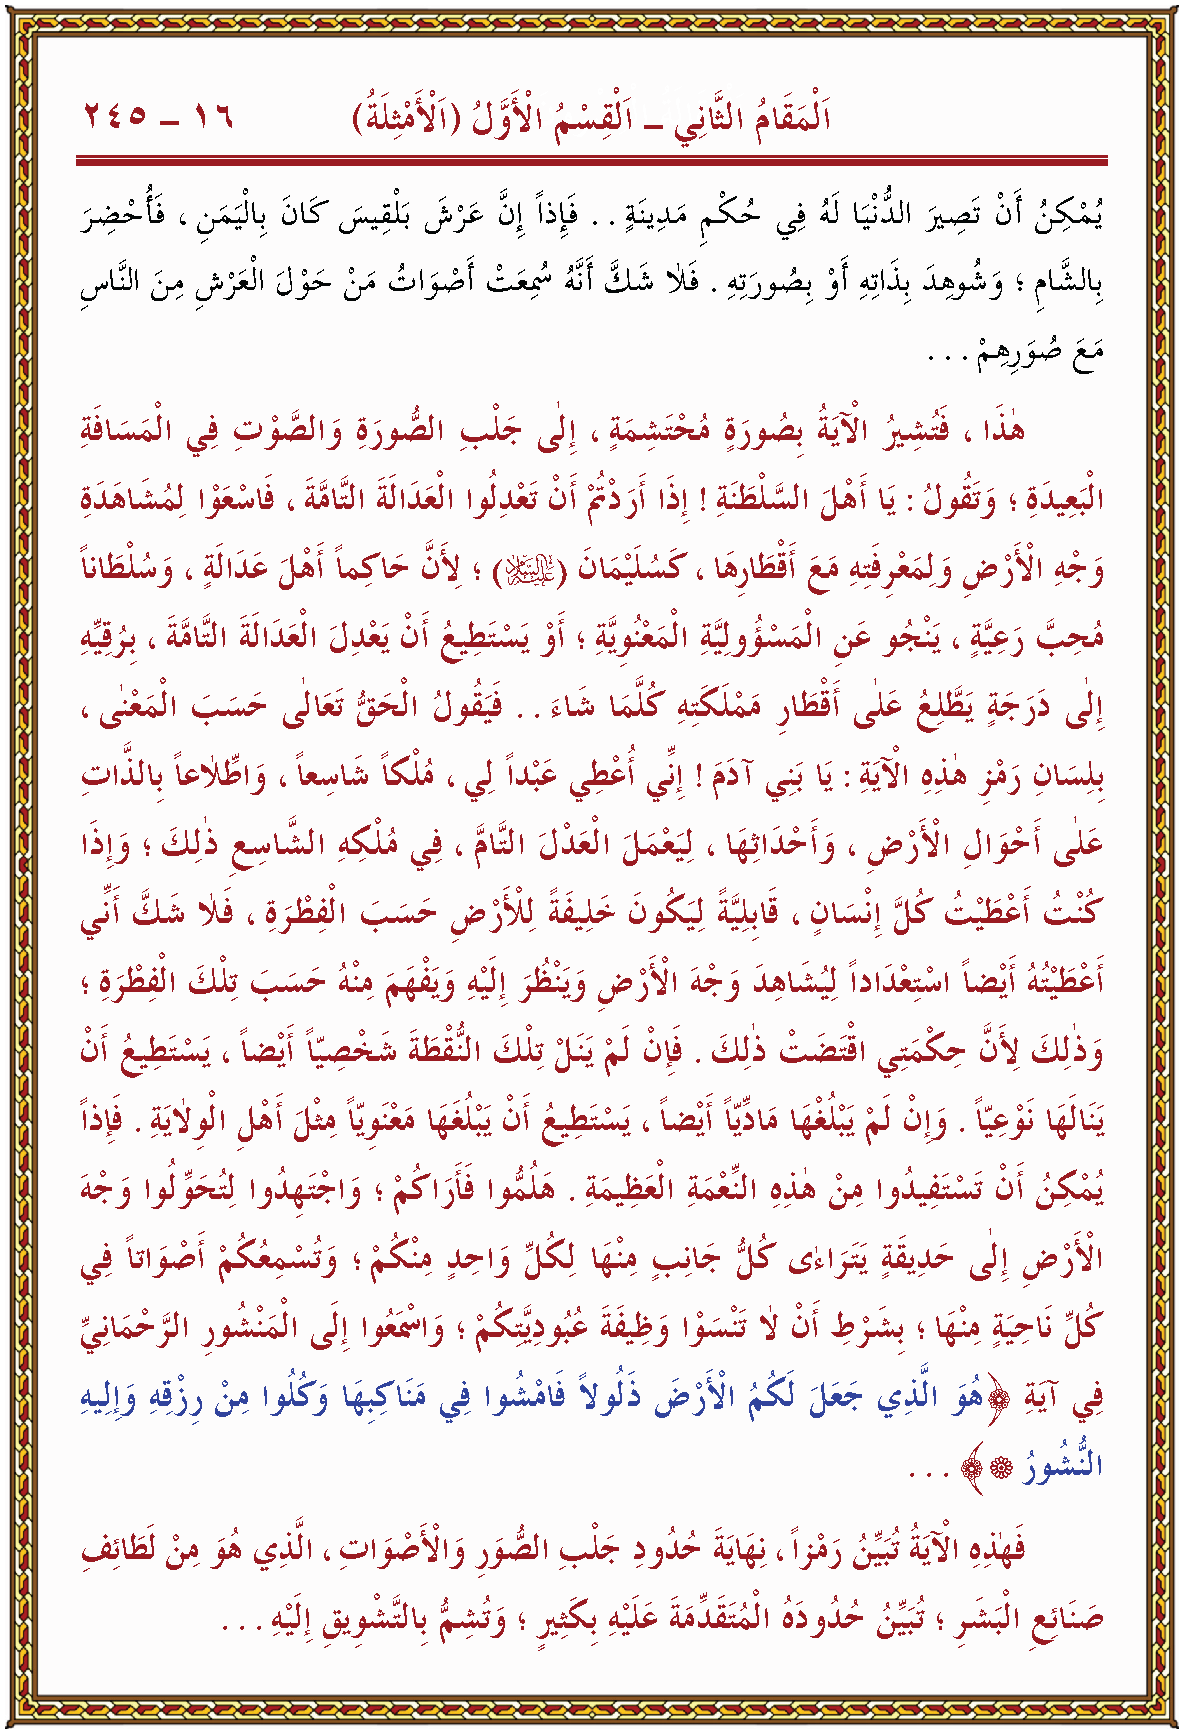 اَلْمَقَامُ الثَّانِي ـ اَلْقِسْمُ الْأَوَّلُ (اَلْأَمْثِلَةُ) ١٦ ـ ٢٤٥
يُمْكِنُ أَنْ تَصِيرَ الدُّنْيَا لَهُ فِي حُكْمِ مَدِينَةٍ . . فَإِذاً إِنَّ عَرْشَ بَلْقِيسَ كَانَ بِالْيَمَنِ ، فَأُحْضِرَ
بِالشَّامِ ؛ وَشُوهِدَ بِذَاتِهِ أَوْ بِصُورَتِهِ . فَلاٰ شَكَّ أَنَّهُ سُمِعَتْ أَصْوَاتُ مَنْ حَوْلَ الْعَرْشِ مِنَ النَّاسِ
مَعَ صُوَرِهِمْ . . .
هٰذَا ، فَتُشِيرُ الْآيَةُ بِصُورَةٍ مُحْتَشِمَةٍ ، إِلٰى جَلْبِ الصُّورَةِ وَالصَّوْتِ فِي الْمَسَافَةِ
الْبَعِيدَةِ ؛ وَتَقُولُ : يَا أَهْلَ السَّلْطَنَةِ ! إِذَا أَرَدْتُمْ أَنْ تَعْدِلُوا الْعَدَالَةَ التَّامَّةَ ، فَاسْعَوْا لِمُشَاهَدَةِ
وَجْهِ الْأَرْضِ وَلِمَعْرِفَتِهِ مَعَ أَقْطَارِهَا ، كَسُلَيْمَانَ (عليه السلام) ؛ لِأَنَّ حَاكِماً أَهْلَ عَدَالَةٍ ، وَسُلْطَاناً
مُحِبَّ رَعِيَّةٍ ، يَنْجُو عَنِ الْمَسْؤُولِيَّةِ الْمَعْنُوِيَّةِ ؛ أَوْ يَسْتَطِيعُ أَنْ يَعْدِلَ الْعَدَالَةَ التَّامَّةَ ، بِرُقِيِّهِ
إِلٰى دَرَجَةٍ يَطَّلِعُ عَلٰى أَقْطَارِ مَمْلَكَتِهِ كُلَّمَا شَاءَ . . فَيَقُولُ الْحَقُّ تَعَالٰى حَسَبَ الْمَعْنٰى ،
بِلِسَانِ رَمْزِ هٰذِهِ الْآيَةِ : يَا بَنِي آدَمَ ! إِنِّي أُعْطِي عَبْداً لِي ، مُلْكاً شَاسِعاً ، وَاطِّلاٰعاً بِالذَّاتِ
عَلٰى أَحْوَالِ الْأَرْضِ ، وَأَحْدَاثِهَا ، لِيَعْمَلَ الْعَدْلَ التَّامَّ ، فِي مُلْكِهِ الشَّاسِعِ ذٰلِكَ ؛ وَإِذَا
كُنْتُ أَعْطَيْتُ كُلَّ إِنْسَانٍ ، قَابِلِيَّةً لِيَكُونَ خَلِيفَةً لِلْأَرْضِ حَسَبَ الْفِطْرَةِ ، فَلاٰ شَكَّ أَنِّي
أَعْطَيْتُهُ أَيْضاً اسْتِعْدَاداً لِيُشَاهِدَ وَجْهَ الْأَرْضِ وَيَنْظُرَ إِلَيْهِ وَيَفْهَمَ مِنْهُ حَسَبَ تِلْكَ الْفِطْرَةِ ؛
وَذٰلِكَ لِأَنَّ حِكْمَتِي اقْتَضَتْ ذٰلِكَ . فَإِنْ لَمْ يَنَلْ تِلْكَ النُّقْطَةَ شَخْصِيّاً أَيْضاً ، يَسْتَطِيعُ أَنْ
يَنَالَهَا نَوْعِيّاً . وَإِنْ لَمْ يَبْلُغْهَا مَادِّيّاً أَيْضاً ، يَسْتَطِيعُ أَنْ يَبْلُغَهَا مَعْنَوِيّاً مِثْلَ أَهْلِ الْوِلاٰيَةِ . فَإِذاً
يُمْكِنُ أَنْ تَسْتَفِيدُوا مِنْ هٰذِهِ النِّعْمَةِ الْعَظِيمَةِ . هَلُمُّوا فَأَرَاكُمْ ؛ وَاجْتَهِدُوا لِتُحَوِّلُوا وَجْهَ
الْأَرْضِ إِلٰى حَدِيقَةٍ يَتَرَاءٰى كُلُّ جَانِبٍ مِنْهَا لِكُلِّ وَاحِدٍ مِنْكُمْ ؛ وَتُسْمِعُكُمْ أَصْوَاتاً فِي
كُلِّ نَاحِيَةٍ مِنْهَا ؛ بِشَرْطِ أَنْ لاٰ تَنْسَوْا وَظِيفَةَ عُبُودِيَّتِكُمْ ؛ وَاسْمَعُوا إِلَى الْمَنْشُورِ الرَّحْمَانِيِّ
فِي آيَةِ ﴿هُوَ الَّذِي جَعَلَ لَكُمُ الْأَرْضَ ذَلُولاً فَامْشُوا فِي مَنَاكِبِهَا وَكُلُوا مِنْ رِزْقِهِ وَإِلِيهِ
النُّشُورُ ۞ ﴾ . . .
فَهٰذِهِ الْآيَةُ تُبَيِّنُ رَمْزاً ، نِهَايَةَ حُدُودِ جَلْبِ الصُّوَرِ وَالْأَصْوَاتِ ، الَّذِي هُوَ مِنْ لَطَائِفِ
صَنَائِعِ الْبَشَرِ ؛ تُبَيِّنُ حُدُودَهُ الْمُتَقَدِّمَةَ عَلَيْهِ بِكَثِيرٍ ؛ وَتُشِمُّ بِالتَّشْوِيقِ إِلَيْهِ . . .